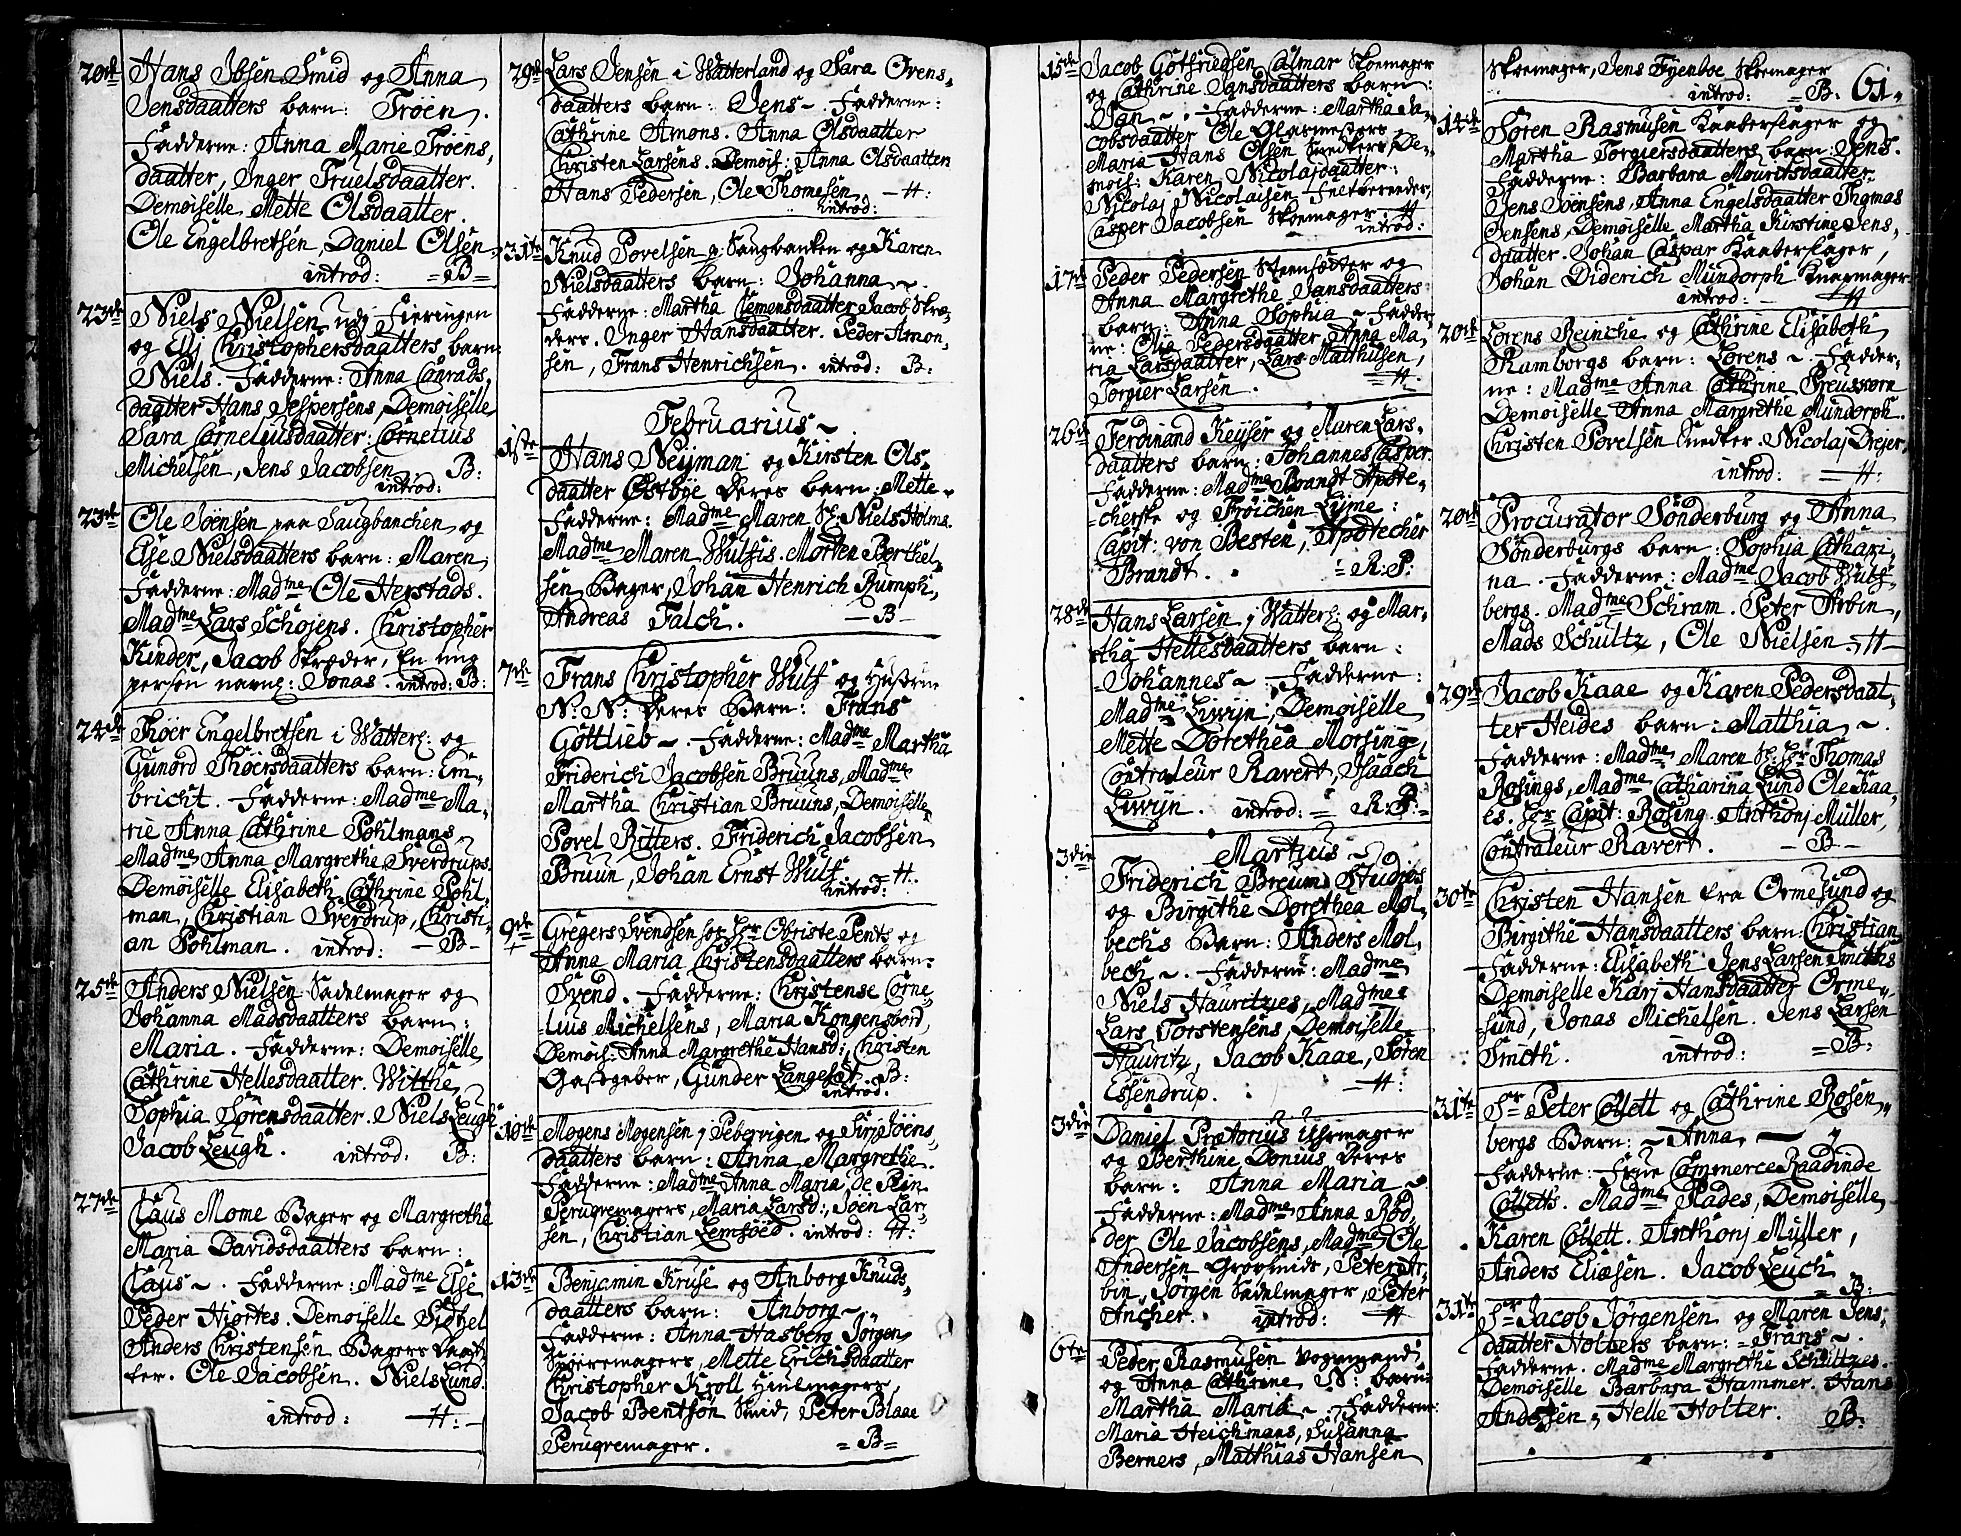 20de Hans Ibsen Smid og Anna
Jensdaatters barn: Troen.
Fadderne: Anna Marie Troens,
daatter, Inger Truelsdaatter.
Demoiselle Mette Olsdaatter.
Ole Engelbretsen, Daniel Olsen
introd: =B=
23de Niels Nielsen udj Fieringen
og Elj Christophersdaatters barn:
Niels. Fadderne: Anna Conrads,
daatter Hans Jespersens, Demoiselle
Sara Corneliusdaatter. Cornelius
Michelsen, Jens Jacobsen B:
introd:
23de Ole Joensen paa Saugbanchen og
Else Nielsdaatters barn: Maren
Fadderne: Madme Ole Herstads.
Madme Lars Schojens. Christopher
Kinder, Jacob Skræder, En ung
person navnl: Jonas. introd: B:
24de Thoer Engelbretsen i Watterl: og
Gunord Thoersdaatters barn: Em-
bricht. Fadderne: Madme Ma-
rie Anna Cathrine Pohlmans
Madme Anna Margrethe Sverdrups.
Demoiselle Elisabeth Cathrine Pohl-
man, Christian Sverdrup, Christi-
an Pohlman. introd: -B-
25de Anders Nielsen Sadelmager og
Johanna Madsdaatters barn:
Maria. Fadderne: Demoiselle
Cathrine Hellesdaatter. Witthe
Sophia Sørensdaatter. Niels Leugh
Jacob Leugh. introd: B:
27de Claus Mome Bager og Margrethe
Maria Davidsdaatters barn:
Claus ~. Fadderne: Madme Else
Peder Hiortes. Demoiselle Sidsel
Anders Christensen Bagers daat-
ter. Ole Jacobsen. Niels Lund.
introd: -H:-
29de Lars Jensen i Watterland og Sara Ovens,
daatters barn: Jens ~. Fadderne:
Cathrine Amons. Anna Olsdaatter
Christen Larsens. Demois: Anna Olsdaatter
Hans Pedersen, Ole Thomesen -H:
introd:
31te Knud Povelsen p: Saugbanken og Karen
Nielsdaatters barn: Johanna ~.
Fadderne: Martha Clemensdaatter Jacob Skræ-
ders. Inger Hansdaatter. Peder Amon-
sen, Frans Henrichsen. introd: B:
Februarius ~
1ste Hans Neyman og Kirsten Ols-
daatter Østbye deres barn: Mette ~
Fadderne: Madme Maren Sl: Niels Holms.
Madme Maren Wulfis. Morten Berthel-
sen Bager, Johan Henrich Rumph,
Andreas Falch. -B-
7de Frans Christopher Wulf og Hustrue
N: N: deres Barn: Frans
Gottlieb ~. Fadderne: Madme Martha
Friderich Jacobsen Bruuns, Madme
Martha Christian Bruuns, Demoiselle
Povel Ritters. Friderich Jacobsen
Bruun, Johan Ernst Wulf. H.
introd:
9de Gregers Svendsen hos Hr Obriste Pents og
Anna Maria Christensdaatters barn:
Svend. Fadderne: Christense Corne-
lius Michelsens, Maria Kongensbord,
Demois: Anna Margrethe Hansd:, Christen
Gastgeber, Gunder Langesæt. B:
introd:
10de Mogens Mogensen j Pebervigen og Sirj Joens,
daatters barn: Anna Margrethe.
Fadderne: Madme Anna Maria de Pein
Peruqvemagers, Maria Larsd:, Joen Lar-
sen, Christian Lemfoed. introd: H:
13de Benjamin Kruse og Anborg Knuds,
daatters barn: Anborg ~.
Fadderne: Anna Hasberg Jørgen
Sporemagers, Mette Erichsdaatter
Christopher Kroll Hiulmagers,
Jacob Bentson Smid, Peter Blaae
Peruqvemager. =B=
15de Jacob Gothfriedsen Calmar Skoemager
og Cathrine Jansdaatters barn:
Jan ~. Fadderne: Martha Ja-
cobsdaatter Ole Glasmesters,
Maria Hans Olsen Snedkers, De-
mois: Karen Nicolajdaatter:
Nicolaj Nicolaisen Feltbereder,
Casper Jacobsen Skoemager H
introd:
17de Peder Pedersen Steensætter og
Anna Margrethe Jansdaatters
barn: Anna Sophia ~ Fadder-
ne: Olia Pedersdaatter, Anna Ma-
ria Larsdaatter, Lars Matthisen,
Torgier Larsen. =H.
26de Ferdinand Keyser og Maren Lars-
daatters barn: Johannes Casper.
Fadderne: Madme Brandt Apote-
cherske og Frøichen Lyme:
Capit: von Besten, Apotecher
Brandt. =R:P:
28de Hans Larsen j Watterl: og Mar-
tha Hellesdaatters barn:
Johannes ~. Fadderne:
Madme Liwyn, Demoiselle
Mette Dorethea Morsing,
Controleur Ravert, Isaach
Liwyn. introd: = R:P:
Martius ~
3die Friderich Breum Studios
og Birgithe Dorethea Mol-
bechs Barn: Anders Mol-
bech ~. Fadderne: Madme
Niels Hauritzies, Madme
Lars Torstensens, Demoiselle
Hauritz, Jacob Kaae, Søren
Essendrup. -H:
3die Daniel Prætorius Uhrmager
og Berthine Donius deres
barn: Anna Maria ~
Fadderne: Madme Anna Rød-
der Ole Jacobsens, Madme Ole
Andersen Grovsmids, Peter Ar-
bin, Jørgen Sadelmager, Peter
Ancher. introd: H
6te Peder Rasmusen Vognmand
og Anna Cathrine N: barn:
Martha Maria ~. Fadderne:
Maria Heichmans, Susanna
Berners, Matthias Hansen
61.
Skoemager, Jens Fyenboe Skoemager
introd: =B.
14de Søren Rasmusen Kaaberslager og
Martha Torgiersdaatters barn: Jens.
Fadderne: Barbara Mouritsdaatter
Jens Joensens, Anna Engelsdaatter Thomas
Jensens, Demoiselle Martha Kirstine Jens,
daatter. Johan Caspar Kaaberslager,
Johan Diderich Mundorph Knapmager
introd: - H
20de Lorens Reinche og Cathrine Elisabeth
Ramborgs barn: Lorens ~. Fadder-
ne: Madme Anna Cathrine Preussorn
Demoiselle Anna Margrethe Mundorph.
Christen Povelsen Snedker. Nicolaj Drejer.
introd: -H:
20de Procurator Sønderburg og Anna
Sønderburgs barn: Sophia Cathari-
na. Fadderne: Madme Jacob Wulf-
bergs. Madme Schram. Peter Arbin,
Mads Schultz, Ole Nielsen. -H-
29de Jacob Kaae og Karen Pedersdaat-
ter Heides barn: Matthia ~.
Fadderne: Madme Maren Sl: Hr: Thomas
Rosings, Madme Catharina Lund Ole Kaa-
es. Hr Capit: Rosing. Anthonj Müller,
Controleur Ravert. -B-
30te Christen Hansen fra Ormesund og
Birgithe Hansdaatters barn: Christian
Fadderne: Elisabeth Jens Larsen Smiths
Demoiselle Karj Hansdaatter Orme-
sund, Jonas Michelsen. Jens Larsen
Smith. introd: =B:
31te Sr Peter Collett og Cathrine Rosen-
bergs Barn: ~ Anna ~
Fadderne: Frue CommerceRaadinde
Colletts. Madme Plades, Demoiselle
Karen Collett. Anthonj Müller,
Anders Eliæsen. Jacob Leuch
=B:
31te Sr Jacob Jørgensen og Maren Jens,
daatter Holters barn: Frans ~.
Fadderne. Madme Margrethe Schultzes.
Demoiselle Barbara Hammer. Hans
Andersen, Helle Holter. B: